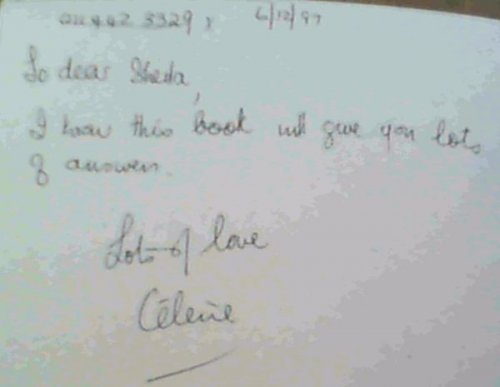 442 3329, 6/12/97
To dear Sheila,
I know this book will give you lots
of answers.
Lots of love
Célene